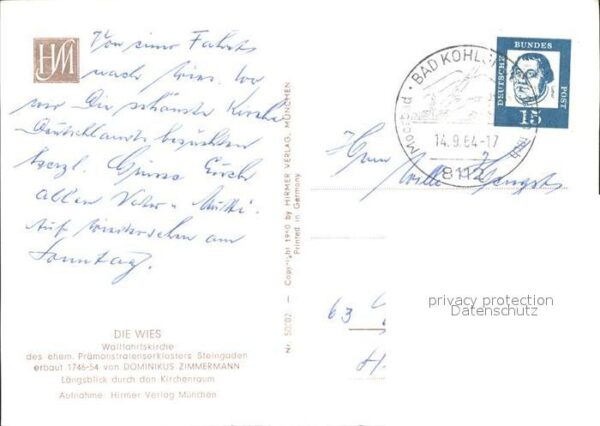 HM
Von einer Fahrt
nach Wies. Wo
wir Die schönste Kirche
Deutschlands besuchten
herzl. Grüsse Euch
allen Vater u. Mutti.
Auf Wiedersehen am
Sonntag.
DIE WIES
Wallfahrtskirche
des ehem. Prämonstratenserklosters Steingaden
erbaut 1746-54 von DOMINIKUS ZIMMERMANN
Längsblick durch den Kirchenraum
Aufnahme Hirmer Verlag München
Nr. 50202 — Copyright 1960 by HIRMER VERLAG, MÜNCHEN
Printed in Germany
BAD KOHLGRUB
Moorbad
14.9.64-17
8112
DEUTSCHE
BUNDES
POST
15
Herrn Willi
63
privacy protection
Datenschutz